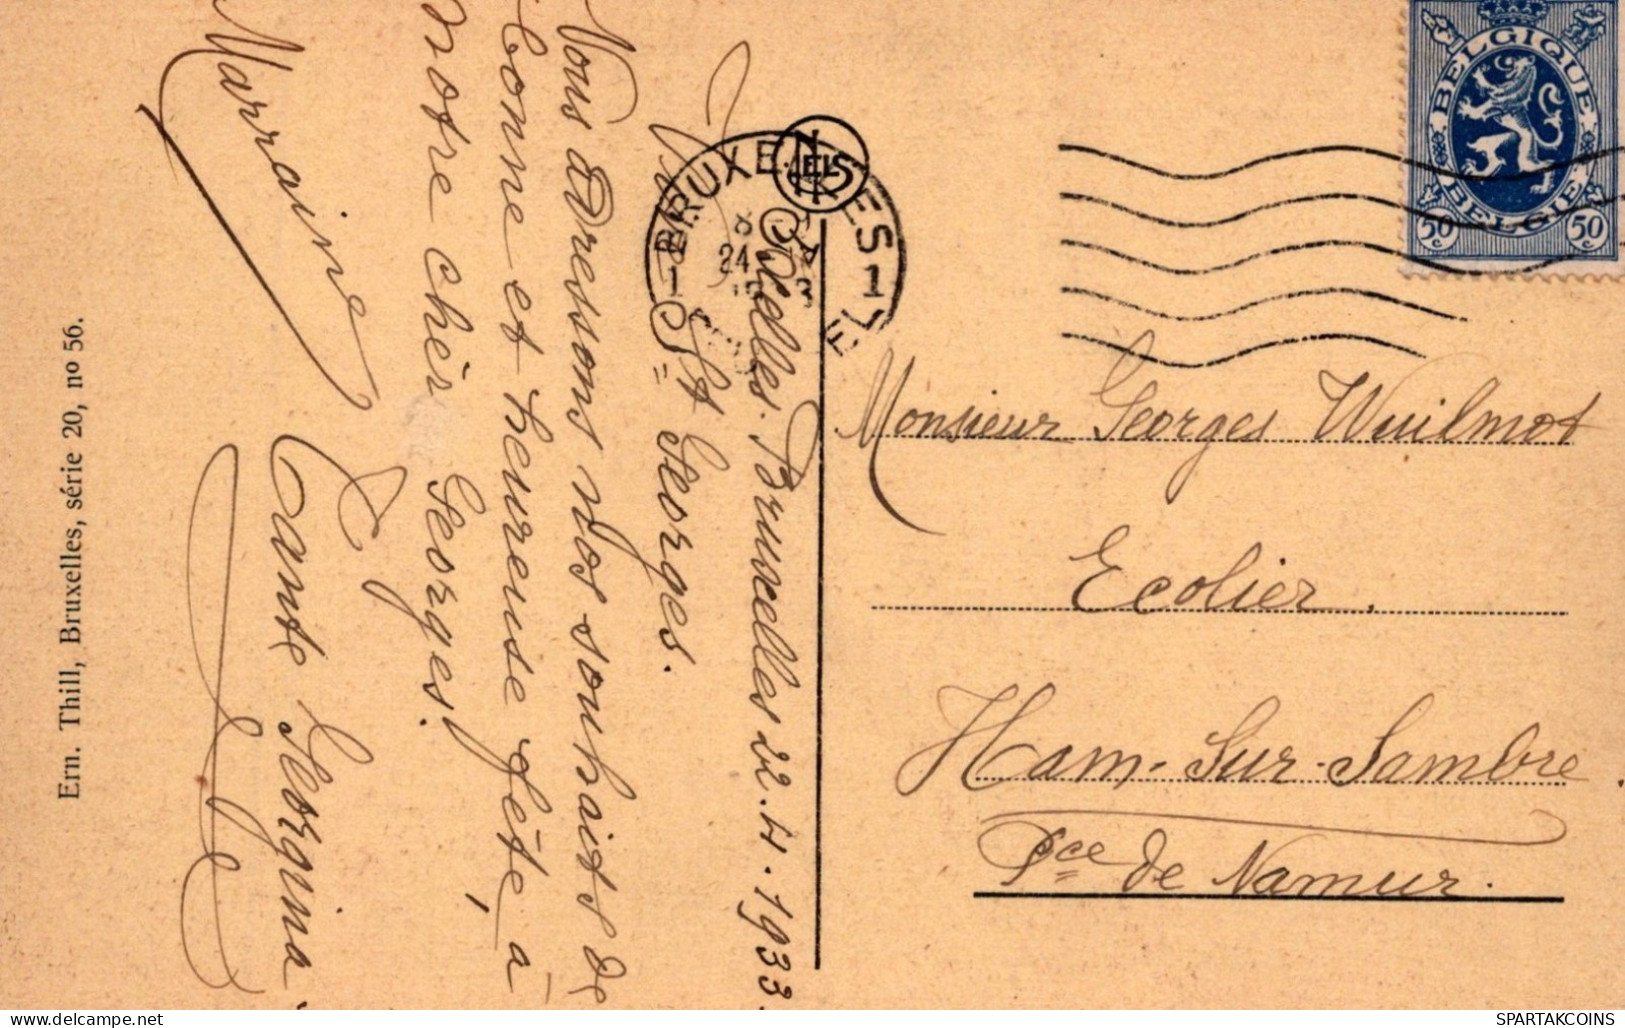 Ixelles. Bruxelles 22.4.1933.
Vive St Georges.
Nous adressons nos souhaits de
bonne et heureuse fête, à
notre chèr Georges!
Marraine & Tante Georgina.
Monsieur Georges Wuilmot
Ecolier.
Ham-Sur-Sambre.
Pce de Namur.
Ern. Thill, Bruxelles, série 20, no 56.
NELS
BRUXELLES
1 1
24
BELGIQUE
BELGIE
50c 50c
SPARTAKCOINS